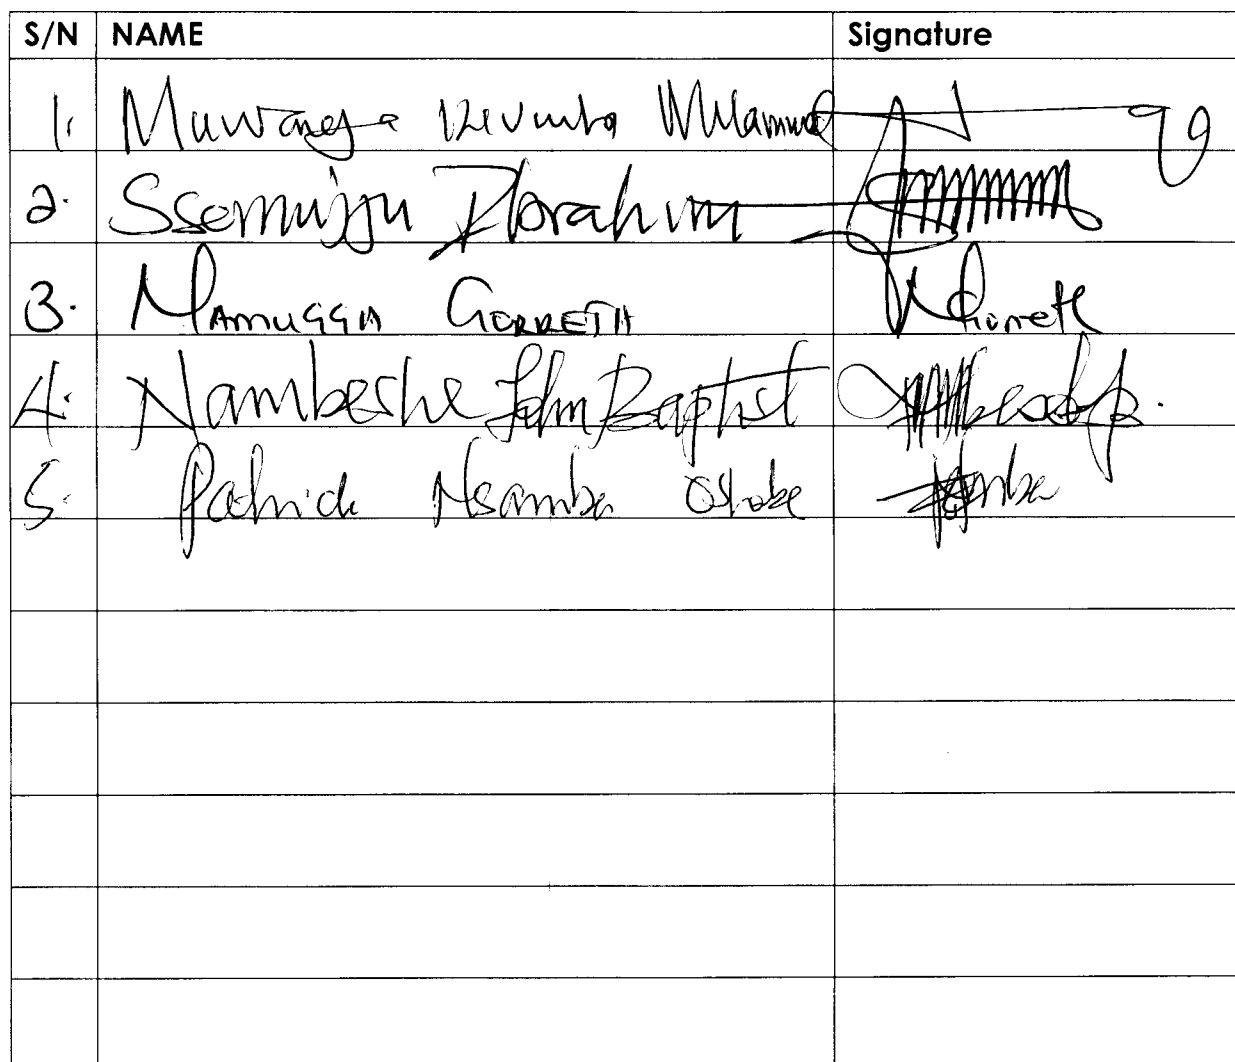 S/N NAME Signature
1. Muwanga Kivumbi Muhammad
2. Ssemujju Ibrahim
3. Namugga Gorreth
4. Nambeshe John Baptist
5. Patrick Nsamba Oshabe